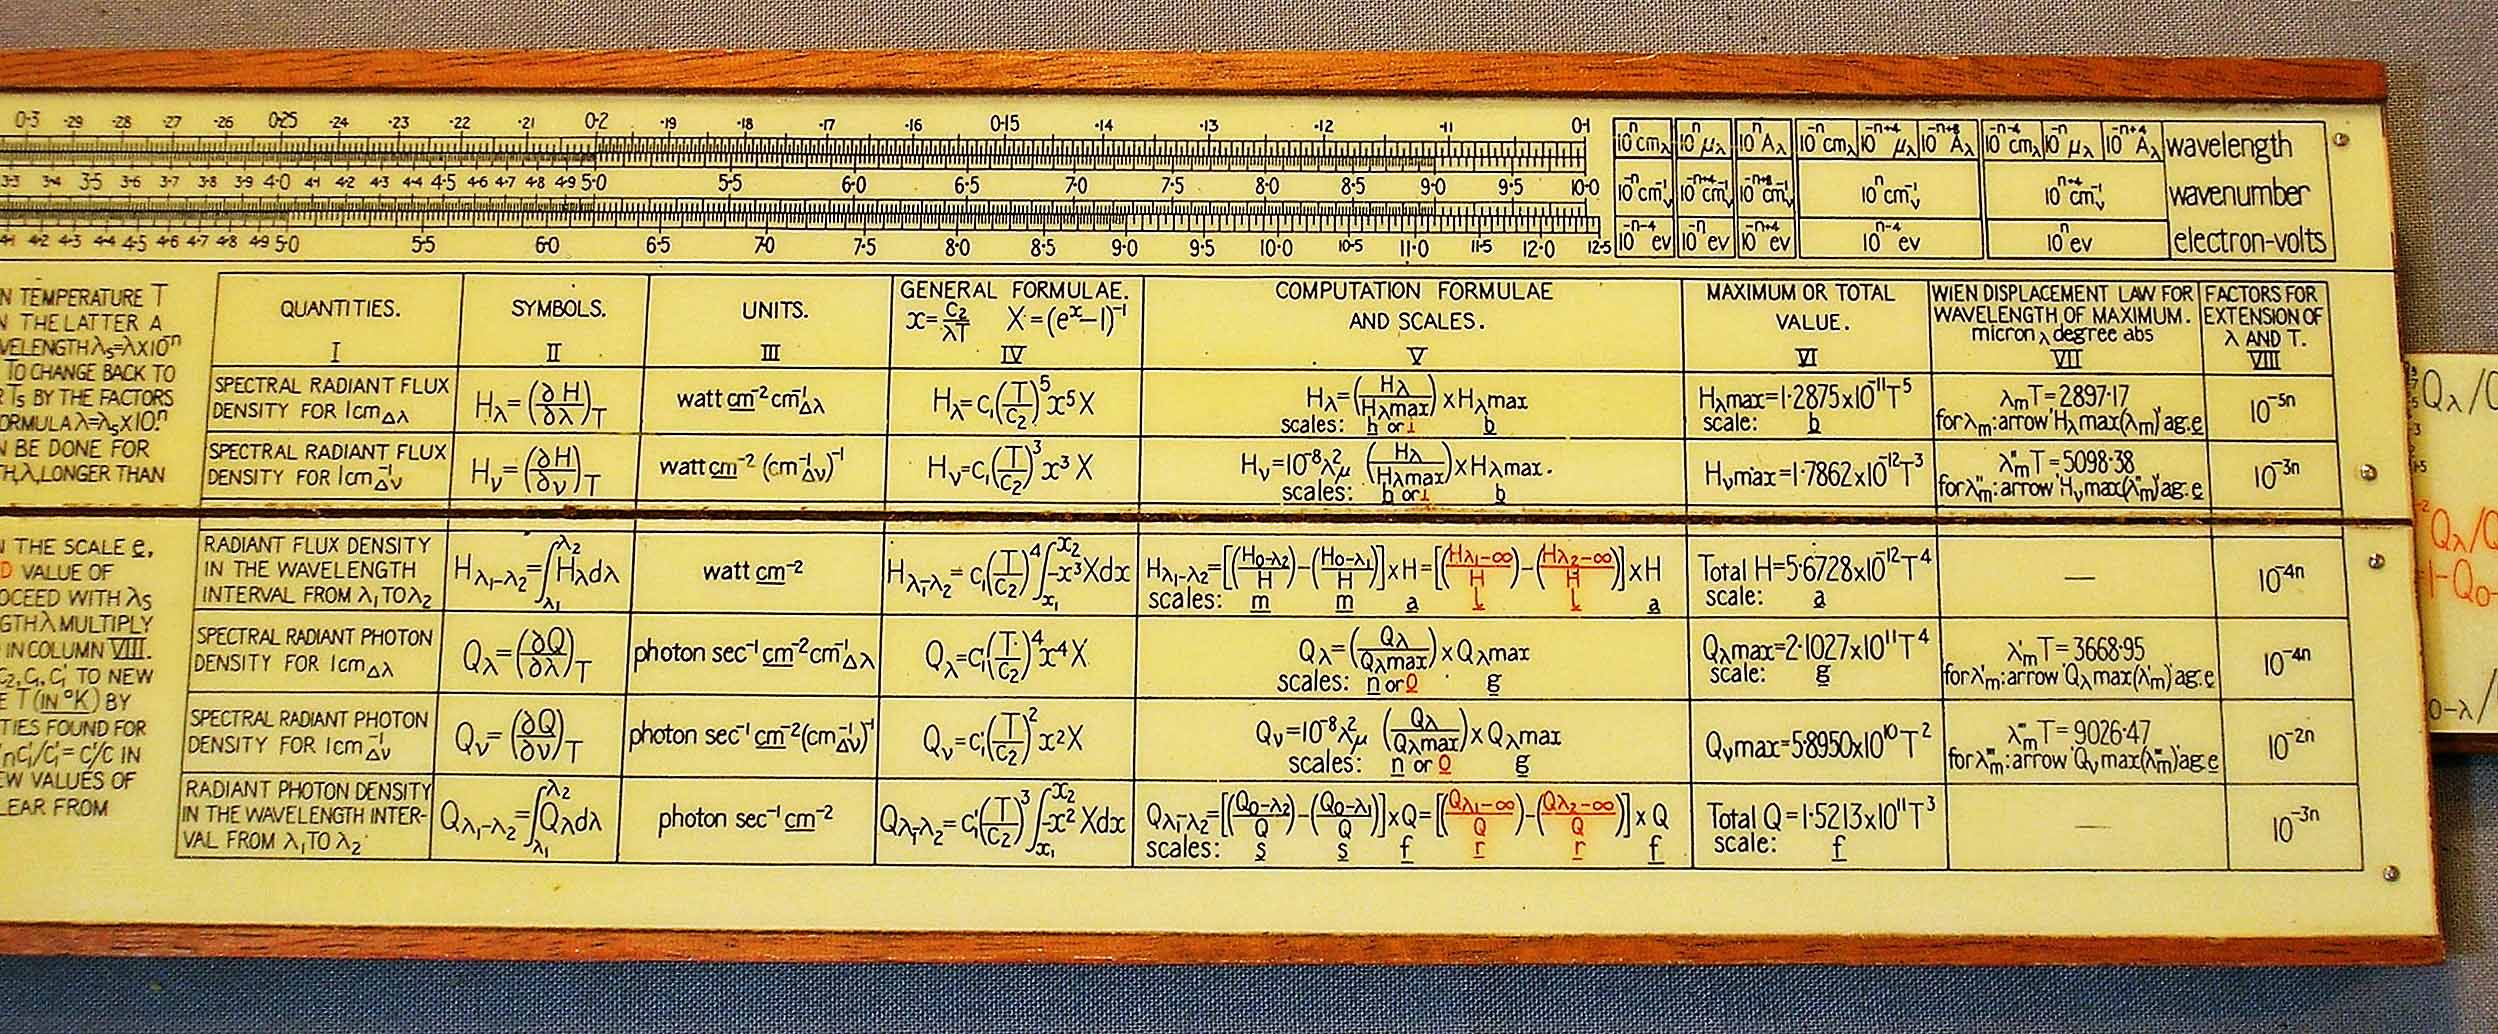 0·3 ·29 ·28 ·27 ·26 0·25 ·24 ·23 ·22 ·21 0·2 ·19 ·18 ·17 ·16 0·15 ·14 ·13 ·12 ·11 0·1
3·3 3·4 3·5 3·6 3·7 3·8 3·9 4·0 4·1 4·2 4·3 4·4 4·5 4·6 4·7 4·8 4·9 5·0 5·5 6·0 6·5 7·0 7·5 8·0 8·5 9·0 9·5 10·0
4·1 4·2 4·3 4·4 4·5 4·6 4·7 4·8 4·9 5·0 5·5 6·0 6·5 7·0 7·5 8·0 8·5 9·0 9·5 10·0 10·5 11·0 11·5 12·0 12·5
10ⁿ cm_λ 10ⁿ μ_λ 10ⁿ A_λ 10⁻ⁿ cm_λ 10⁻ⁿ⁺⁴ μ_λ 10⁻ⁿ⁺⁸ A_λ 10⁻ⁿ⁻⁴ cm_λ 10⁻ⁿ μ_λ 10⁻ⁿ⁺⁴ A_λ wavelength
10⁻ⁿ cm⁻¹_ν 10⁻ⁿ⁺⁴ cm⁻¹_ν 10⁻ⁿ⁺⁸ cm⁻¹_ν 10ⁿ cm⁻¹_ν 10ⁿ⁺⁴ cm⁻¹_ν wavenumber
10⁻ⁿ⁻⁴ ev 10⁻ⁿ ev 10⁻ⁿ⁺⁴ ev 10ⁿ⁻⁴ ev 10ⁿ ev electron-volts
N TEMPERATURE T
N THE LATTER A
VELENGTH λs=λx10⁻ⁿ
TO CHANGE BACK TO
R Ts BY THE FACTORS
ORMULA λ=λs x10ⁿ
N BE DONE FOR
TH, λ, LONGER THAN
N THE SCALE e,
D VALUE OF
OCEED WITH λs
GTH λ MULTIPLY
IN COLUMN VIII.
C₂, C₁, C₁' TO NEW
E T (IN °K) BY
TIES FOUND FOR
/nC₁'/C₁'= C'/C IN
EW VALUES OF
LEAR FROM
QUANTITIES.
I
SYMBOLS.
II
UNITS.
III
GENERAL FORMULAE.
x=C₂/λT X=(eˣ−1)⁻¹
IV
COMPUTATION FORMULAE
AND SCALES.
V
MAXIMUM OR TOTAL
VALUE.
VI
WIEN DISPLACEMENT LAW FOR
WAVELENGTH OF MAXIMUM.
micron λ degree abs
VII
FACTORS FOR
EXTENSION OF
λ AND T.
VIII
SPECTRAL RADIANT FLUX
DENSITY FOR 1cm Δλ
Hλ=(∂H/∂λ)T
watt cm⁻² cm⁻¹Δλ
Hλ=C₁(T/C₂)⁵x⁵X
Hλ=(Hλ/Hλmax)xHλmax
scales: h or i b
Hλmax=1·2875x10⁻¹¹T⁵
scale: b
λmT=2897·17
for λm:arrow 'Hλmax(λm)' ag.e
10⁻⁵ⁿ
SPECTRAL RADIANT FLUX
DENSITY FOR 1cm⁻¹Δν
Hν=(∂H/∂ν)T
watt cm⁻² (cm⁻¹Δν)⁻¹
Hν=C₁(T/C₂)³x³X
Hν=10⁻⁸λ²μ (Hλ/Hλmax)xHλmax.
scales: h or i b
Hνmax=1·7862x10⁻¹²T³
λ"mT=5098·38
for λ"m:arrow 'Hνmax(λ"m)' ag.e
10⁻³ⁿ
RADIANT FLUX DENSITY
IN THE WAVELENGTH
INTERVAL FROM λ₁ TO λ₂
Hλ₁−λ₂=∫λ₁λ₂ Hλdλ
watt cm⁻²
Hλ₁−λ₂=C₁(T/C₂)⁴∫x₁x₂ −x³Xdx
Hλ₁−λ₂=[(H₀−λ₂/H)−(H₀−λ₁/H)]xH=[(Hλ₁−∞/H)−(Hλ₂−∞/H)]xH
scales: m m a l l a
Total H=5·6728x10⁻¹²T⁴
scale: a
—
10⁻⁴ⁿ
SPECTRAL RADIANT PHOTON
DENSITY FOR 1cm Δλ
Qλ=(∂Q/∂λ)T
photon sec⁻¹ cm⁻² cm⁻¹Δλ
Qλ=C₁'(T/C₂)⁴x⁴X
Qλ=(Qλ/Qλmax)xQλmax
scales: n or o g
Qλmax=2·1027x10¹¹T⁴
scale: g
λ'mT=3668·95
for λ'm:arrow 'Qλmax(λ'm)' ag.e
10⁻⁴ⁿ
SPECTRAL RADIANT PHOTON
DENSITY FOR 1cm⁻¹Δν
Qν=(∂Q/∂ν)T
photon sec⁻¹ cm⁻²(cm⁻¹Δν)⁻¹
Qν=C₁'(T/C₂)²x²X
Qν=10⁻⁸λ²μ (Qλ/Qλmax)xQλmax
scales: n or o g
Qνmax=5·8950x10¹⁰T²
λ'''mT=9026·47
for λ'''m:arrow 'Qνmax(λ'''m)' ag.e
10⁻²ⁿ
RADIANT PHOTON DENSITY
IN THE WAVELENGTH INTER-
VAL FROM λ₁ TO λ₂
Qλ₁−λ₂=∫λ₁λ₂ Qλdλ
photon sec⁻¹ cm⁻²
Qλ₁−λ₂=C₁'(T/C₂)³∫x₁x₂ −x²Xdx
Qλ₁−λ₂=[(Q₀−λ₂/Q)−(Q₀−λ₁/Q)]xQ=[(Qλ₁−∞/Q)−(Qλ₂−∞/Q)]xQ
scales: s s f r r f
Total Q=1·5213x10¹¹T³
scale: f
—
10⁻³ⁿ
Qλ/Q
Qλ/Q
1−Q₀−
0−λ/